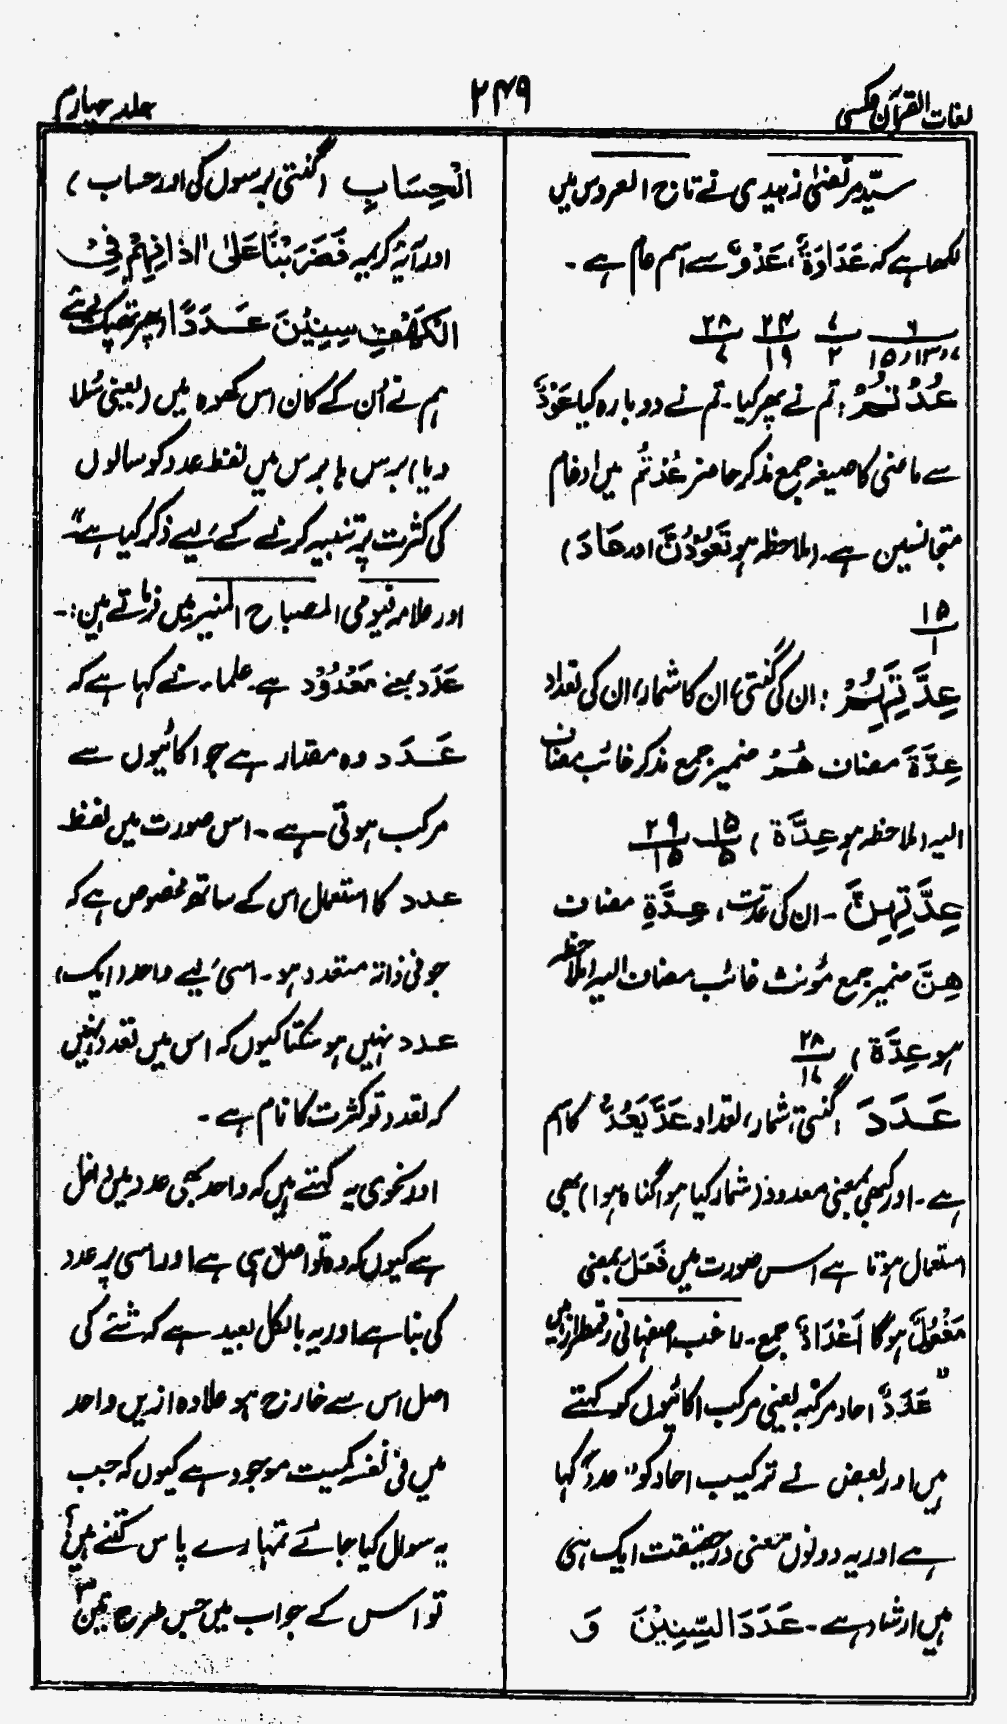 لغات القرآن عکسی
۲۴۹
جلد چہارم
سیّد مرتضیٰ زبیدی نے تاج العروس میں
لکھا ہے کہ عَدَاوَۃٌ، عَدْوٌ سے اسم عام ہے۔
۶/۷،۱۳،۱۵ ۷/۲ ۲۴/۱۹ ۲۸/۷
عُدْتُمْ: تم نے پھر کیا۔ تم نے دوبارہ کیا عَوْدٌ
سے ماضی کا صیغہ جمع مذکر حاضر عُدْتُمْ میں ادغام
متجانسین ہے۔ (ملاحظہ ہو تَعُوْدُنَّ اور عَادَ)
۱۵/۱
عِدَّتِہِمْ: ان کی گنتی، ان کا شمار، ان کی تعداد
عِدَّۃَ مضاف ھُمْ ضمیر جمع مذکر غائب مضاف
الیہ (ملاحظہ ہو عِدَّۃ) ۱۵/۵ ۲۹/۱۵
عِدَّتِہِنَّ۔ ان کی عدت، عِدَّۃِ مضاف
ھِنَّ ضمیر جمع مؤنث غائب مضاف الیہ (ملاحظہ
ہو عِدَّۃ) ۲۸/۱۷
عَدَدَ گنتی، شمار، تعداد عَدَّ یَعُدُّ کا اسم
ہے۔ اور کبھی بمعنی معدود (شمار کیا ہوا گنا ہوا) بھی
استعمال ہوتا ہے اس صورت میں فَعَلٌ بمعنی
مَفْعُوْلٌ ہوگا اَعْدَادٌ جمع۔ راغب اصفہانی رقمطراز ہیں
"عَدَدٌ احاد مرکبہ یعنی مرکب اکائیوں کو کہتے
ہیں اور بعض نے ترکیب احاد کو "عدد" کہا
ہے اور یہ دونوں معنی درحقیقت ایک ہی
ہیں ارشاد ہے۔ عَدَدَ السِّنِیْنَ وَ
الْحِسَابِ (گنتی برسوں کی اور حساب)
اور آیۂ کریمہ فَضَرَبْنَا عَلٰی اٰذَانِہِمْ فِی
الْکَہْفِ سِنِیْنَ عَدَدًا (پھر تھپک دیئے
ہم نے اُن کے کان اس کھوہ میں (یعنی سُلا
دیا) برس ہا برس میں لفظ عدد کو سالوں
کی کثرت پر تنبیہ کرنے کے لیے ذکر کیا ہے"
اور علامہ فیومی المصباح المنیر میں فرماتے ہیں:۔
عَدَد بمعنے مَعْدُوْد ہے۔ علماء نے کہا ہے کہ
عَدَد وہ مقدار ہے جو اکائیوں سے
مرکب ہوتی ہے۔ اس صورت میں لفظ
عدد کا استعمال اس کے ساتھ مخصوص ہے کہ
جو فی ذاتہ متعدد ہو۔ اسی لیے واحد (ایک)
عدد نہیں ہو سکتا کیوں کہ اس میں تعدد نہیں
کہ تعدد تو کثرت کا نام ہے۔
اور نحوی یہ کہتے ہیں کہ واحد بھی عدد میں داخل
ہے کیوں کہ وہ تو اصل ہی ہے اور اسی پر عدد
کی بنا ہے اور یہ بالکل بعید ہے کہ شئے کی
اصل اس سے خارج ہو علاوہ ازیں واحد
میں فی نفسہ کمیت موجود ہے کیوں کہ جب
یہ سوال کیا جائے تمہارے پاس کتنے ہیں؟
تو اس کے جواب میں جس طرح تین